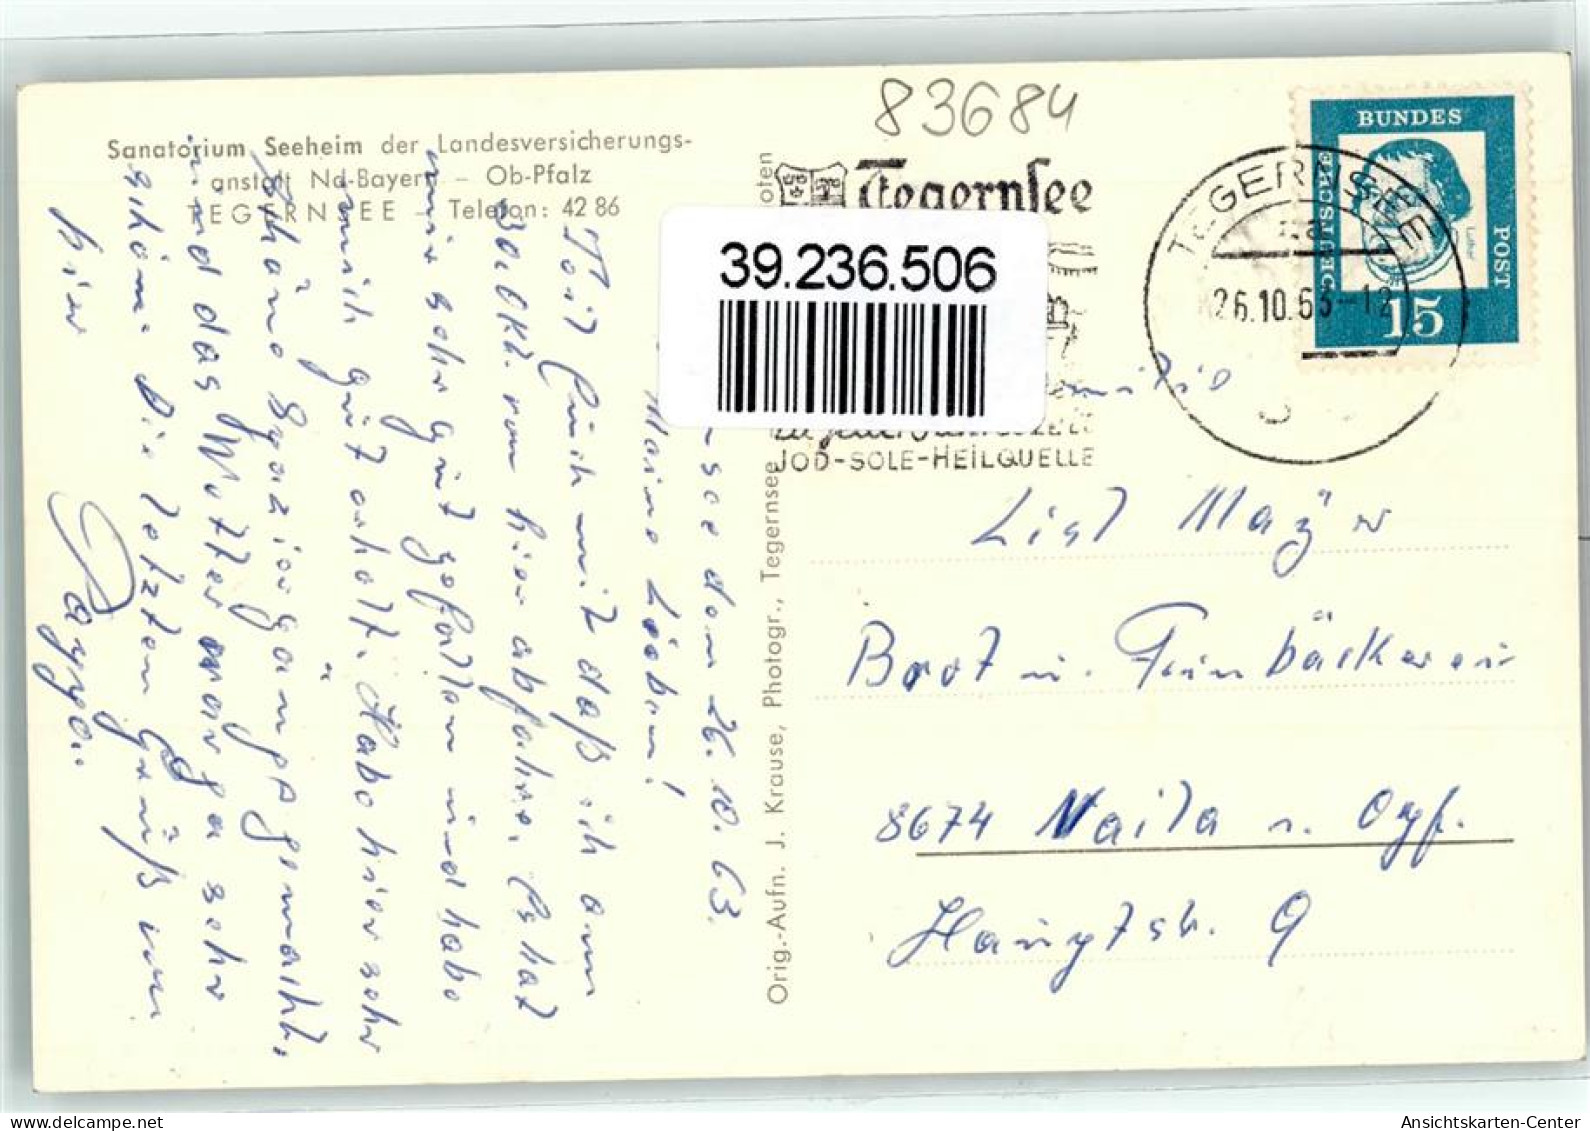 83684
Sanatorium Seeheim der Landesversicherungs-
anstalt Nd-Bayern – Ob-Pfalz
TEGERNSEE – Telefon: 42 86
Tegernsee
39.236.506
JOD-SOLE-HEILQUELLE
TEGERNSEE
26.10.63-12
DEUTSCHE
BUNDES
POST
Luther
15
Orig.-Aufn. J. Krause, Photogr., Tegernsee
nsee den 26. 10. 63.
Meine Lieben!
Teil Euch mit daß ich am
30. Okt. von hier abfahre. Es hat
mir sehr gut gefallen und habe
mich gut erholt. Habe hier sehr
schöne Spaziergänge gemacht,
und das Wetter war ja sehr
schön. Die letzten Grüße von
hier
List
Brot u. Feinbäckerei
8674 Naila n. Ogf.
Hauptstr. 9
Ansichtskarten-Center